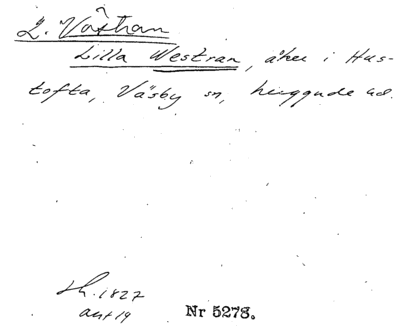 2. Västran
Lilla Westran, åker i Hus-
tofta, Väsby sn, Luggude hd.
sk. 1827
akt 19 Nr 5278.